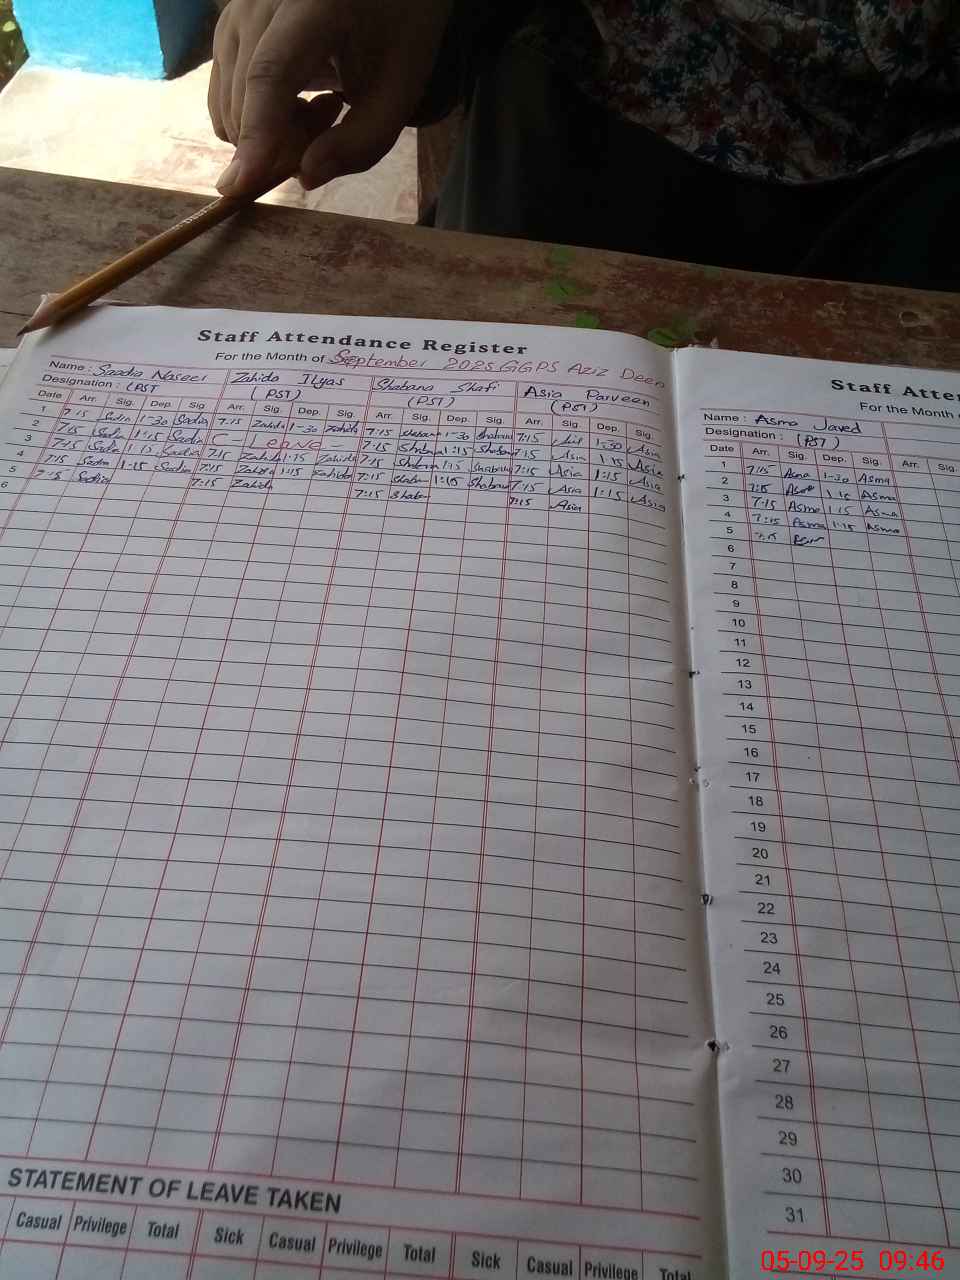 Staff Attendance Register
For the Month of September 2025 GGPS Aziz Deen
Name: Saadia Naseer Zahida Ilyas Shabana Shafi Asia Parveen
Designation: (PST (PST) (PST) (PST)
Date Arr. Sig. Dep. Sig. Arr. Sig. Dep. Sig. Arr. Sig. Dep. Sig. Arr. Sig. Dep. Sig.
1 7:15 Sadia 1-30 Sadia 7:15 Zahida 1-30 Zahida 7:15 Shabana 1-30 Shabana 7:15 1-30 Asia
2 7:15 Sadia 1:15 Sadia C - Leave - 7:15 Shabana 1:15 Shaban 7:15 Asia 1:15 Asia
3 7:15 Sadia 1:15 Sadia 7:15 Zahida 1:15 Zahida 7:15 Shabana 1:15 Shabana 7:15 Asia 1:15 Asia
4 7:15 Sadia 1:15 Sadia 7:15 Zahida 1:15 Zahida 7:15 Shaban 1:15 Shabana 7:15 Asia 1:15 Asia
5 7:15 Sadia 7:15 Zahida 7:15 Shaban 7:15 Asia
6
STATEMENT OF LEAVE TAKEN
Casual Privilege Total Sick Casual Privilege Total Sick Casual Privilege Total
Staff Atten
For the Month o
Name: Asma Javed
Designation: (PST)
Date Arr. Sig. Dep. Sig. Arr. Sig.
1 7:15 Asma 1-30 Asma
2 7:15 Asma 1:15 Asma
3 7:15 Asma 1:15 Asma
4 7:15 Asma 1:15 Asma
5 7:15
6
7
8
9
10
11
12
13
14
15
16
17
18
19
20
21
22
23
24
25
26
27
28
29
30
31
05-09-25 09:46